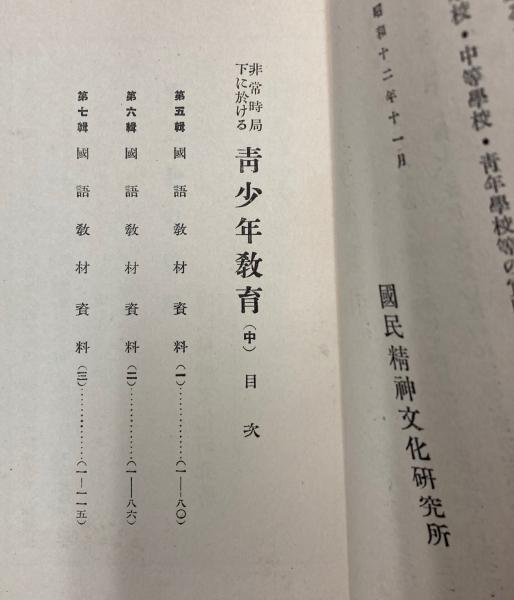 校・中等學校・青年學校等の
昭和十二年十一月
國民精神文化研究所
非常時局
下に於ける
靑少年敎育(中) 目次
第五輯 國語敎材資料(一)‥‥‥‥(一―八〇)
第六輯 國語敎材資料(二)‥‥‥‥(一―八六)
第七輯 國語敎材資料(三)‥‥‥‥(一―一一五)